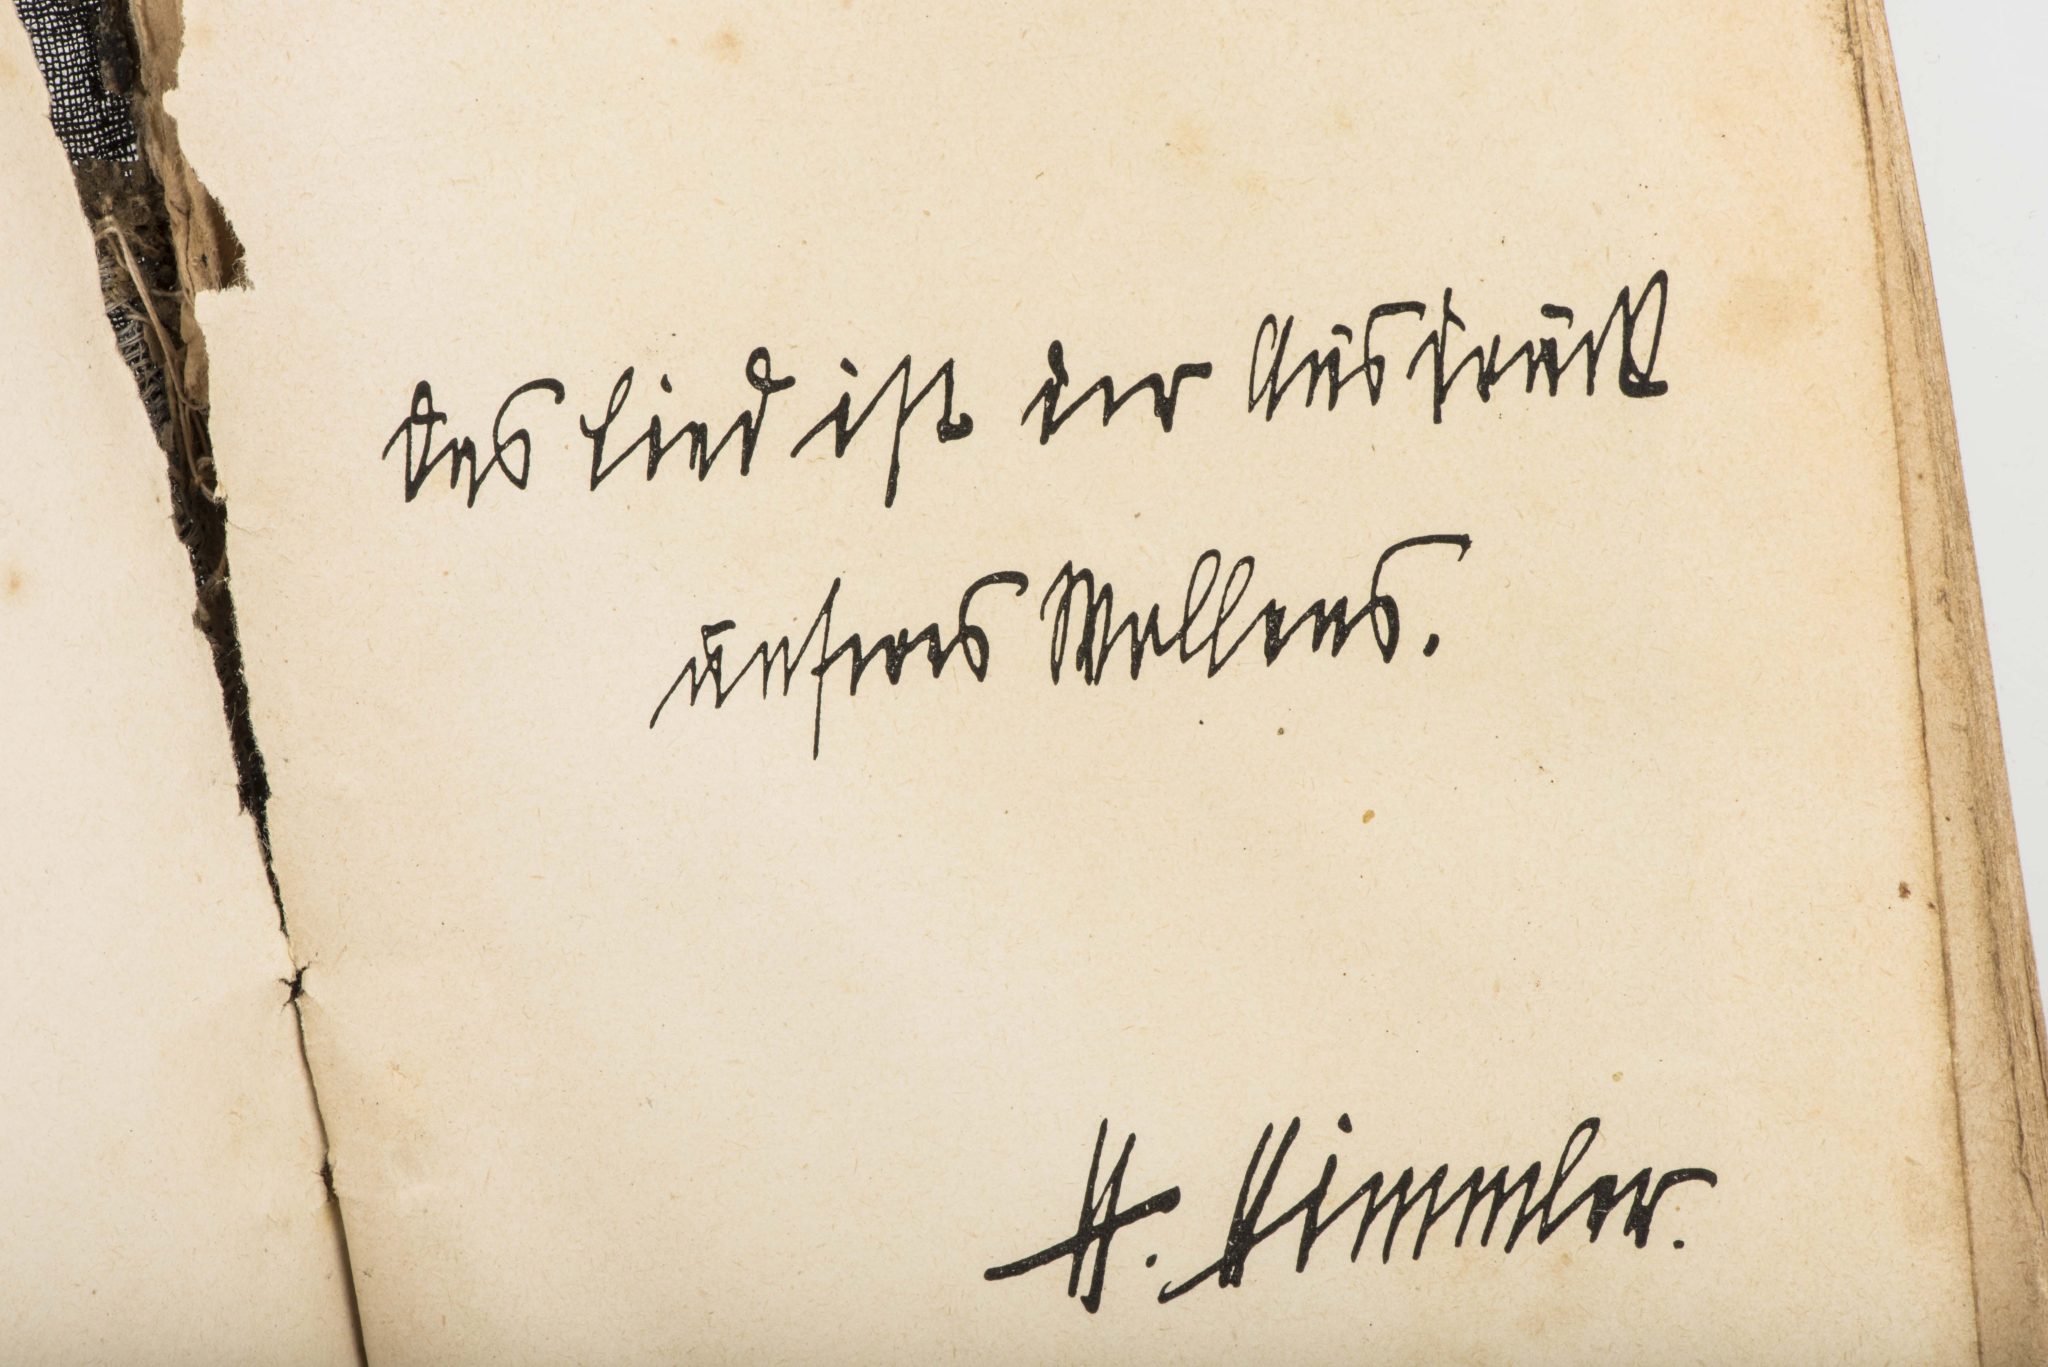 Das Lied ist der Ausdruck
unseres Wollens.
H. Himmler.